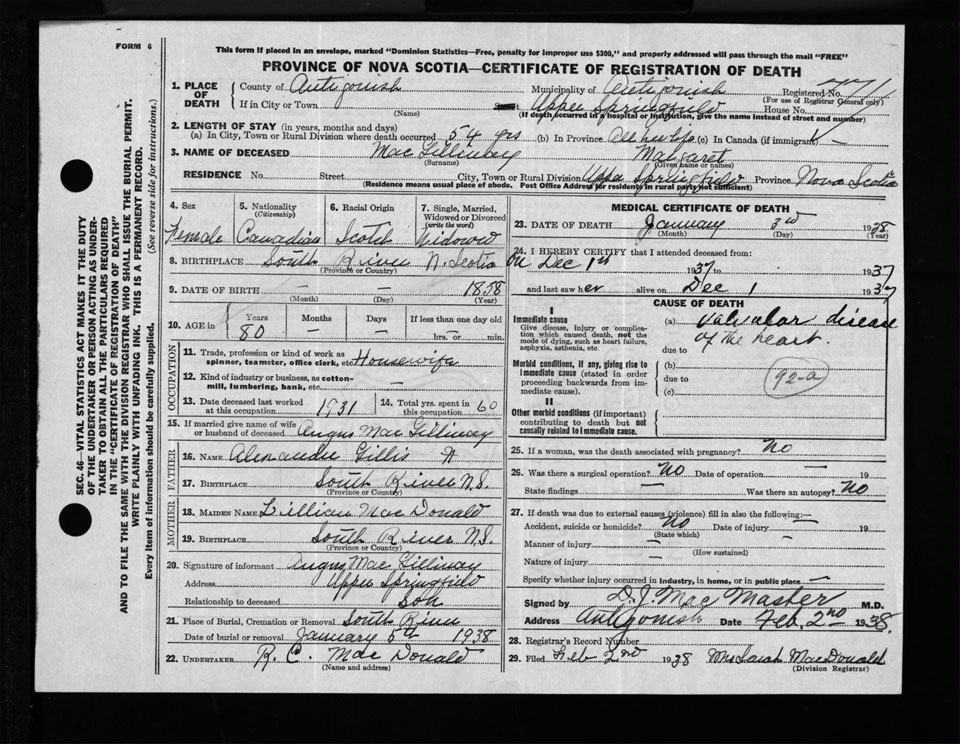 FORM 6
This form if placed in an envelope, marked "Dominion Statistics—Free, penalty for improper use $300," and properly addressed will pass through the mail "FREE"
PROVINCE OF NOVA SCOTIA—CERTIFICATE OF REGISTRATION OF DEATH
SEC. 46—VITAL STATISTICS ACT MAKES IT THE DUTY
OF THE UNDERTAKER OR PERSON ACTING AS UNDER-
TAKER TO OBTAIN ALL THE PARTICULARS REQUIRED
IN THE "CERTIFICATE OF REGISTRATION OF DEATH"
AND TO FILE THE SAME WITH THE DIVISION REGISTRAR WHO SHALL ISSUE THE BURIAL PERMIT.
WRITE PLAINLY WITH UNFADING INK. THIS IS A PERMANENT RECORD.
Every item of information should be carefully supplied. (See reverse side for instructions.)
1. PLACE OF DEATH
County of Antigonish Municipality of Antigonish Registered No. 771
(For use of Registrar General only)
If in City or Town (Name) Upper Springfield House No.
(If death occurred in a hospital or institution, give the name instead of street and number)
2. LENGTH OF STAY (in years, months and days)
(a) In City, Town or Rural Division where death occurred 54 yrs (b) In Province All her life (c) In Canada (if immigrant)
3. NAME OF DECEASED MacGillivray Margaret
(Surname) (Given name or names)
RESIDENCE No. Street City, Town or Rural Division Upper Springfield Province Nova Scotia
(Residence means usual place of abode. Post Office Address for residents in rural parts not sufficient)
4. Sex Female
5. Nationality (Citizenship) Canadian
6. Racial Origin Scotch
7. Single, Married, Widowed or Divorced (write the word) Widow
8. BIRTHPLACE South River N. Scotia
(Province or Country)
9. DATE OF BIRTH — — 1858
(Month) (Day) (Year)
10. AGE in Years 80 Months — Days — If less than one day old hrs. or min.
OCCUPATION
11. Trade, profession or kind of work as spinner, teamster, office clerk, etc. Housewife
12. Kind of industry or business, as cotton-mill, lumbering, bank, etc. —
13. Date deceased last worked at this occupation 1931
14. Total yrs. spent in this occupation 60
15. If married give name of wife or husband of deceased Angus MacGillivray
FATHER
16. NAME Alexander Gillis
17. BIRTHPLACE South River N.S.
(Province or Country)
MOTHER
18. MAIDEN NAME Lillian MacDonald
19. BIRTHPLACE South River N.S.
(Province or Country)
20. Signature of informant Angus MacGillivray
Address Upper Springfield
Relationship to deceased Son
21. Place of Burial, Cremation or Removal South River
Date of burial or removal January 5th 1938
22. UNDERTAKER R. C. MacDonald
(Name and address)
MEDICAL CERTIFICATE OF DEATH
23. DATE OF DEATH January 3rd 1938
(Month) (Day) (Year)
24. I HEREBY CERTIFY that I attended deceased from:
On Dec 1st 1937 to 1937
and last saw her alive on Dec 1 1937
CAUSE OF DEATH
I
Immediate cause
Give disease, injury or complication which caused death, not the mode of dying, such as heart failure, asphyxia, asthenia, etc.
(a) Valvular disease of the heart.
due to
Morbid conditions, if any, giving rise to immediate cause (stated in order proceeding backwards from immediate cause).
(b)
due to
(c)
92-a
II
Other morbid conditions (if important) contributing to death but not causally related to immediate cause.
25. If a woman, was the death associated with pregnancy? No
26. Was there a surgical operation? No Date of operation — 19
State findings — Was there an autopsy? No
27. If death was due to external causes (violence) fill in also the following:—
Accident, suicide or homicide? No Date of injury — 19
(State which)
Manner of injury —
(How sustained)
Nature of injury —
Specify whether injury occurred in industry, in home, or in public place —
Signed by D. J. MacMaster M.D.
Address Antigonish Date Feb. 2nd 1938.
28. Registrar's Record Number
29. Filed Feb 2nd 1938 Mrs Sarah MacDonald
(Division Registrar)